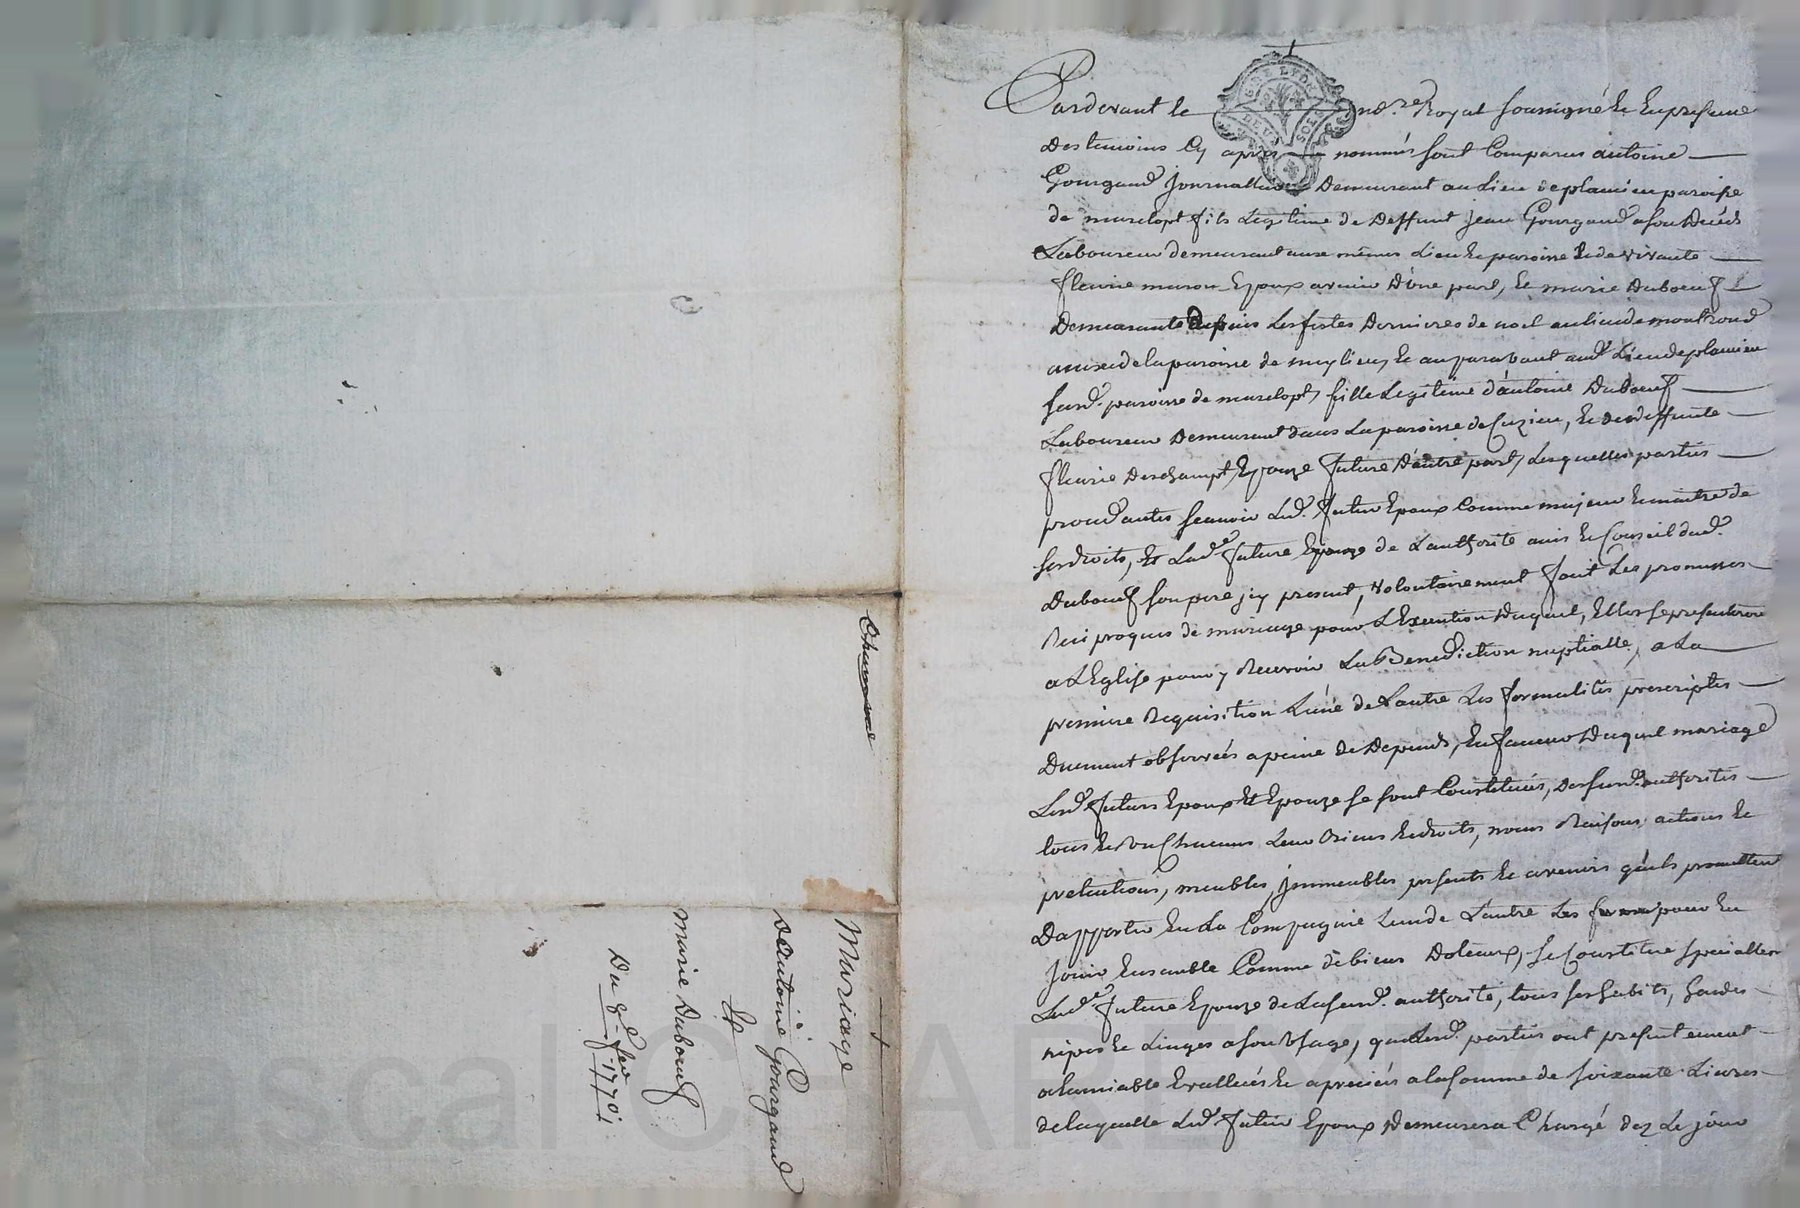 Chavassieu
Mariage
D'antoine Gourgaud
Et
marie Duboeuf
Du 8e fevr 1770.
GN. DE LYON
DEUX SOLS
Pardevant le no.re Royal soussigné Et En presence
Des temoins Cy apres nommés sont Comparus antoine
Gourgaud journallier Demeurant au Lieu de plamieu paroisse
de marclopt fils Legitime de Deffunt jean Gourgaud a son Décés
Laboureur demeurant aux mêmes Lieu Et paroisse Et de vivante
fleurie mason Epoux avenir D'une part, Et marie Duboeuf
Demeurante Depuis Les festes Dernieres de noel au lieu de montrond
annexe de la paroisse de meylieu, Et auparavant aud. Lieu de plamieu
susd. paroisse de marclopt, fille Legitime d'antoine Duboeuf
Laboureur Demeurant dans La paroisse de Cuzieu, Et de deffunte
fleurie Deschampt Epouze future D'autre part, Lesquelles parties
procedantes scavoir Led. futur Epoux Comme majeur Et maitre de
ses droits, Et Lad.e future Epouze de L'authorité avis Et Conseil dud.
Duboeuf son pere jcy present, volontairement font Les promesses
Reciproques de mariage pour L'Execution Duquel, Elles se presenteront
a L'Eglise pour y Recevoir La Benediction nuptialle, a La
premiere Requisition L'une de L'autre Les formalités prescriptes
Duement observées a peine de Depends, En faveur Duquel mariage
Lesd. futurs Epoux Et Epouze se sont Constitués, Des susd. authorités
tous Et un Chacuns Leur Biens Et droits, noms Raisons actions Et
pretentions, meubles, jmmeubles, presents Et avenirs qu'ils promettent
D'apporter En La Compagnie L'un de L'autre Les pour En
jouir Ensemble Comme de biens Doteaux, se Constitue speciallement
Lad.e future Epouze de La susd. authorité, tous ses habits, hardes
nipes Et Linges a son Usage, que Lesd. parties ont presentement
a L'amiable Evallués Et apreciés a la somme de soixante Livres
de laquelle Led. futur Epoux Demeurera Chargé dez Le jour
Pascal CHAREYRON